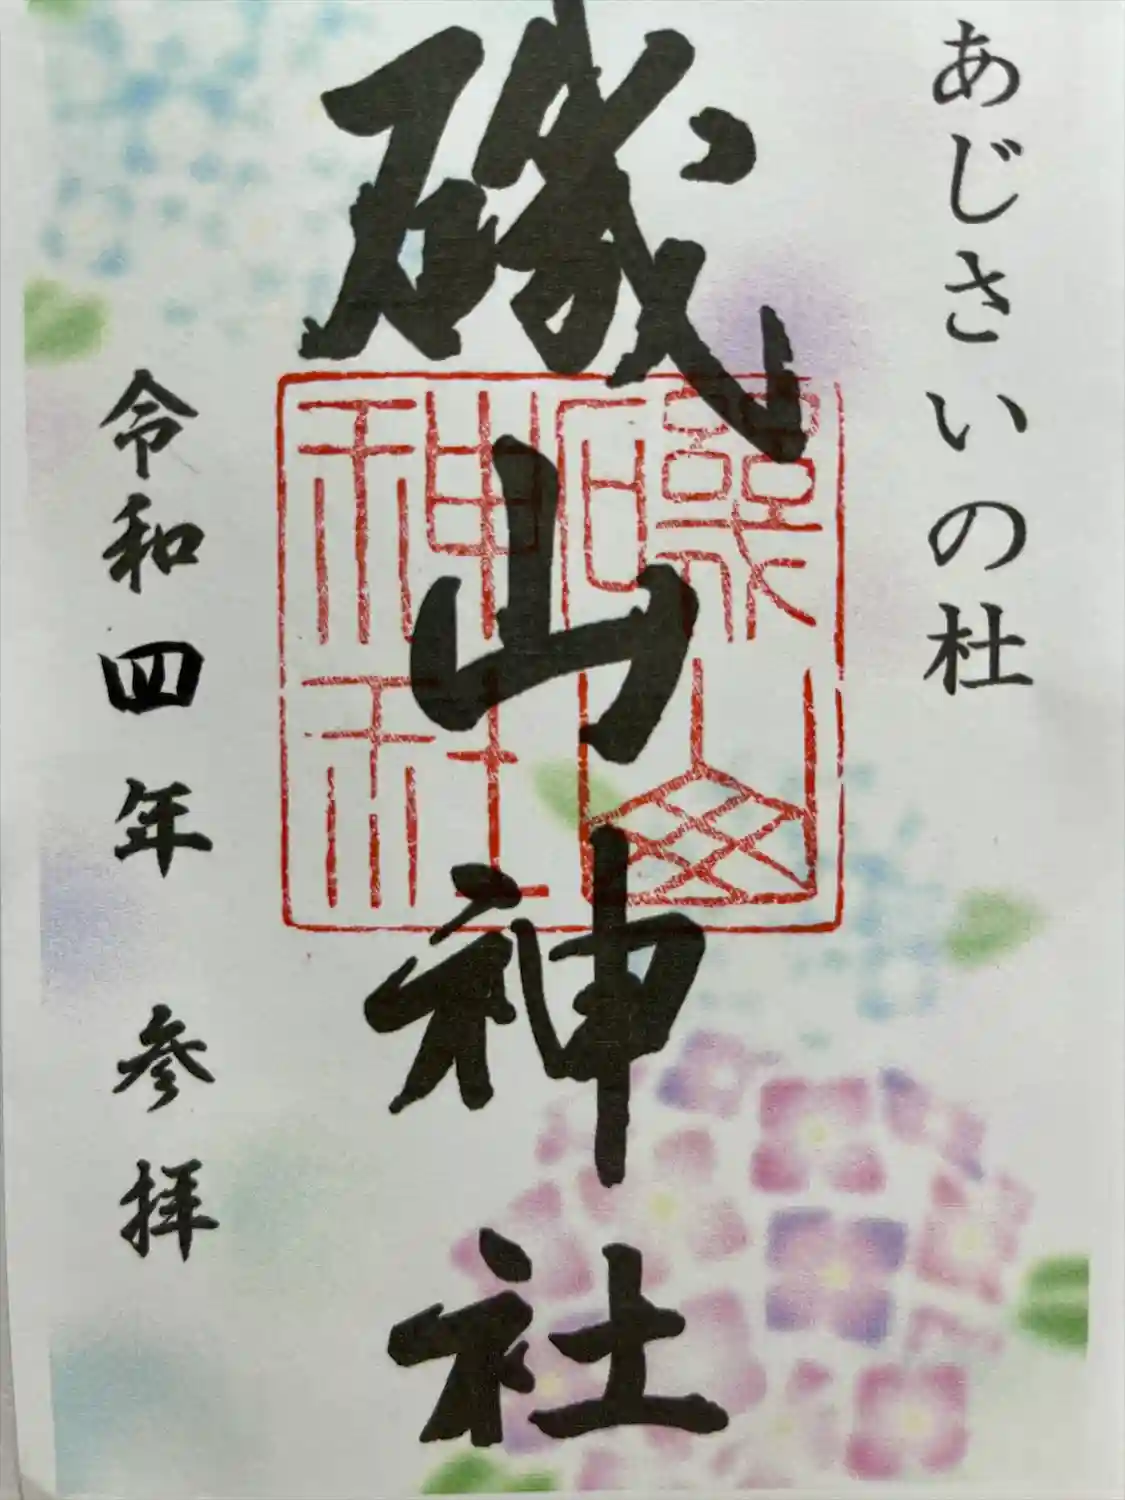 あじさいの杜
磯山神社
磯山神社
令和四年 参拝